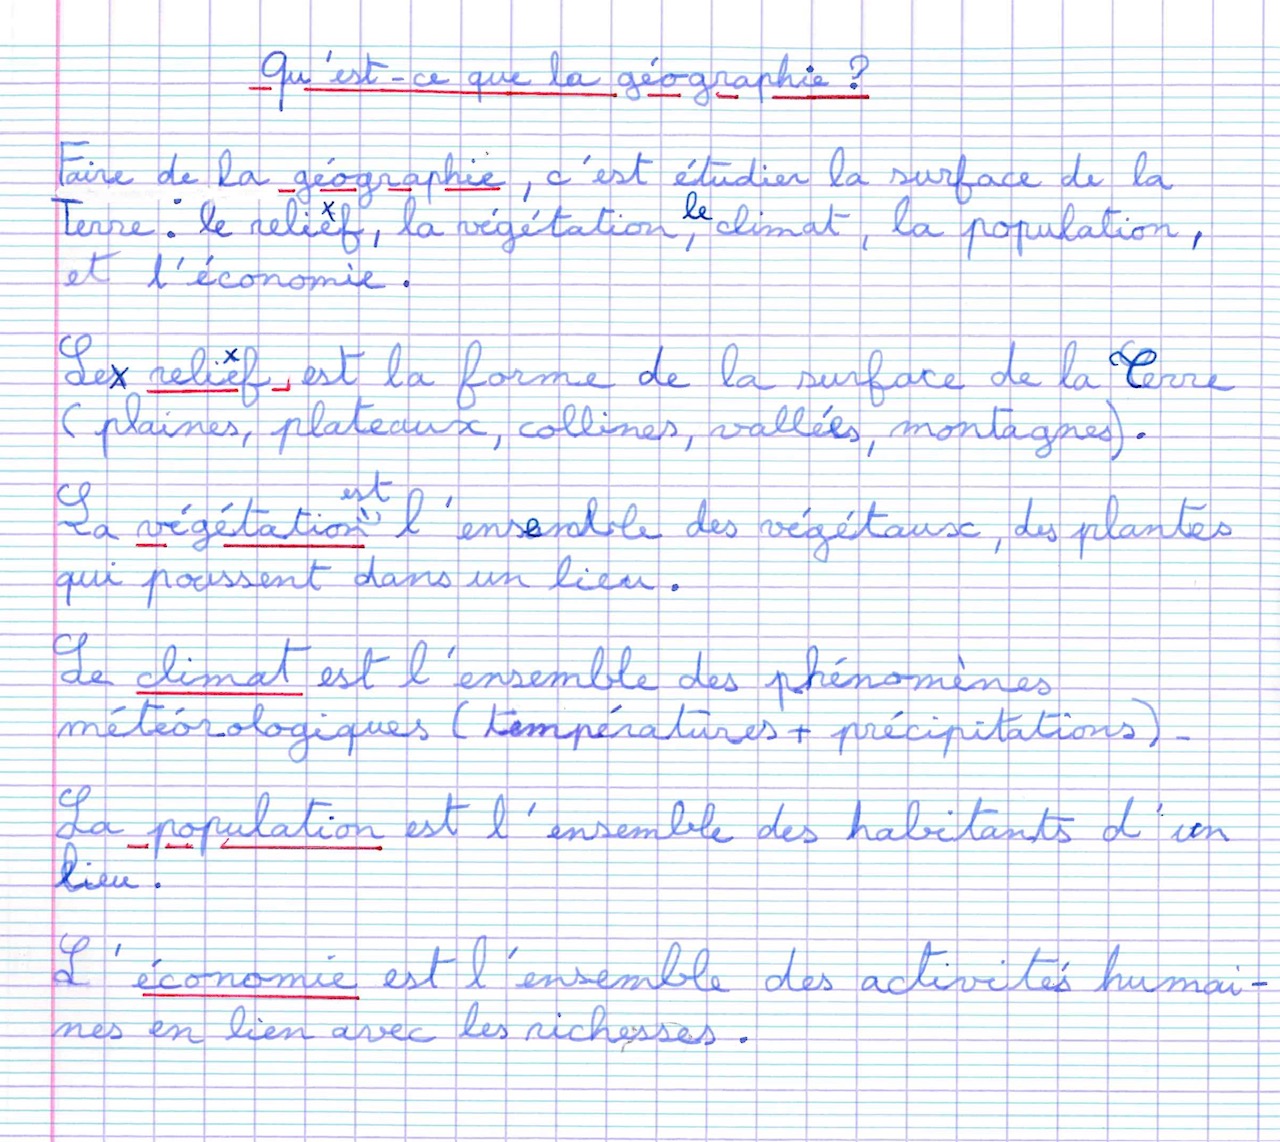 Qu'est-ce que la géographie ?
Faire de la géographie, c'est étudier la surface de la
Terre : le relief, la végétation, le climat, la population,
et l'économie.
Le relief est la forme de la surface de la Terre
(plaines, plateaux, collines, vallées, montagnes).
La végétation est l'ensemble des végétaux, des plantes
qui poussent dans un lieu.
Le climat est l'ensemble des phénomènes
météorologiques (températures + précipitations).
La population est l'ensemble des habitants d'un
lieu.
L'économie est l'ensemble des activités humai-
nes en lien avec les richesses.